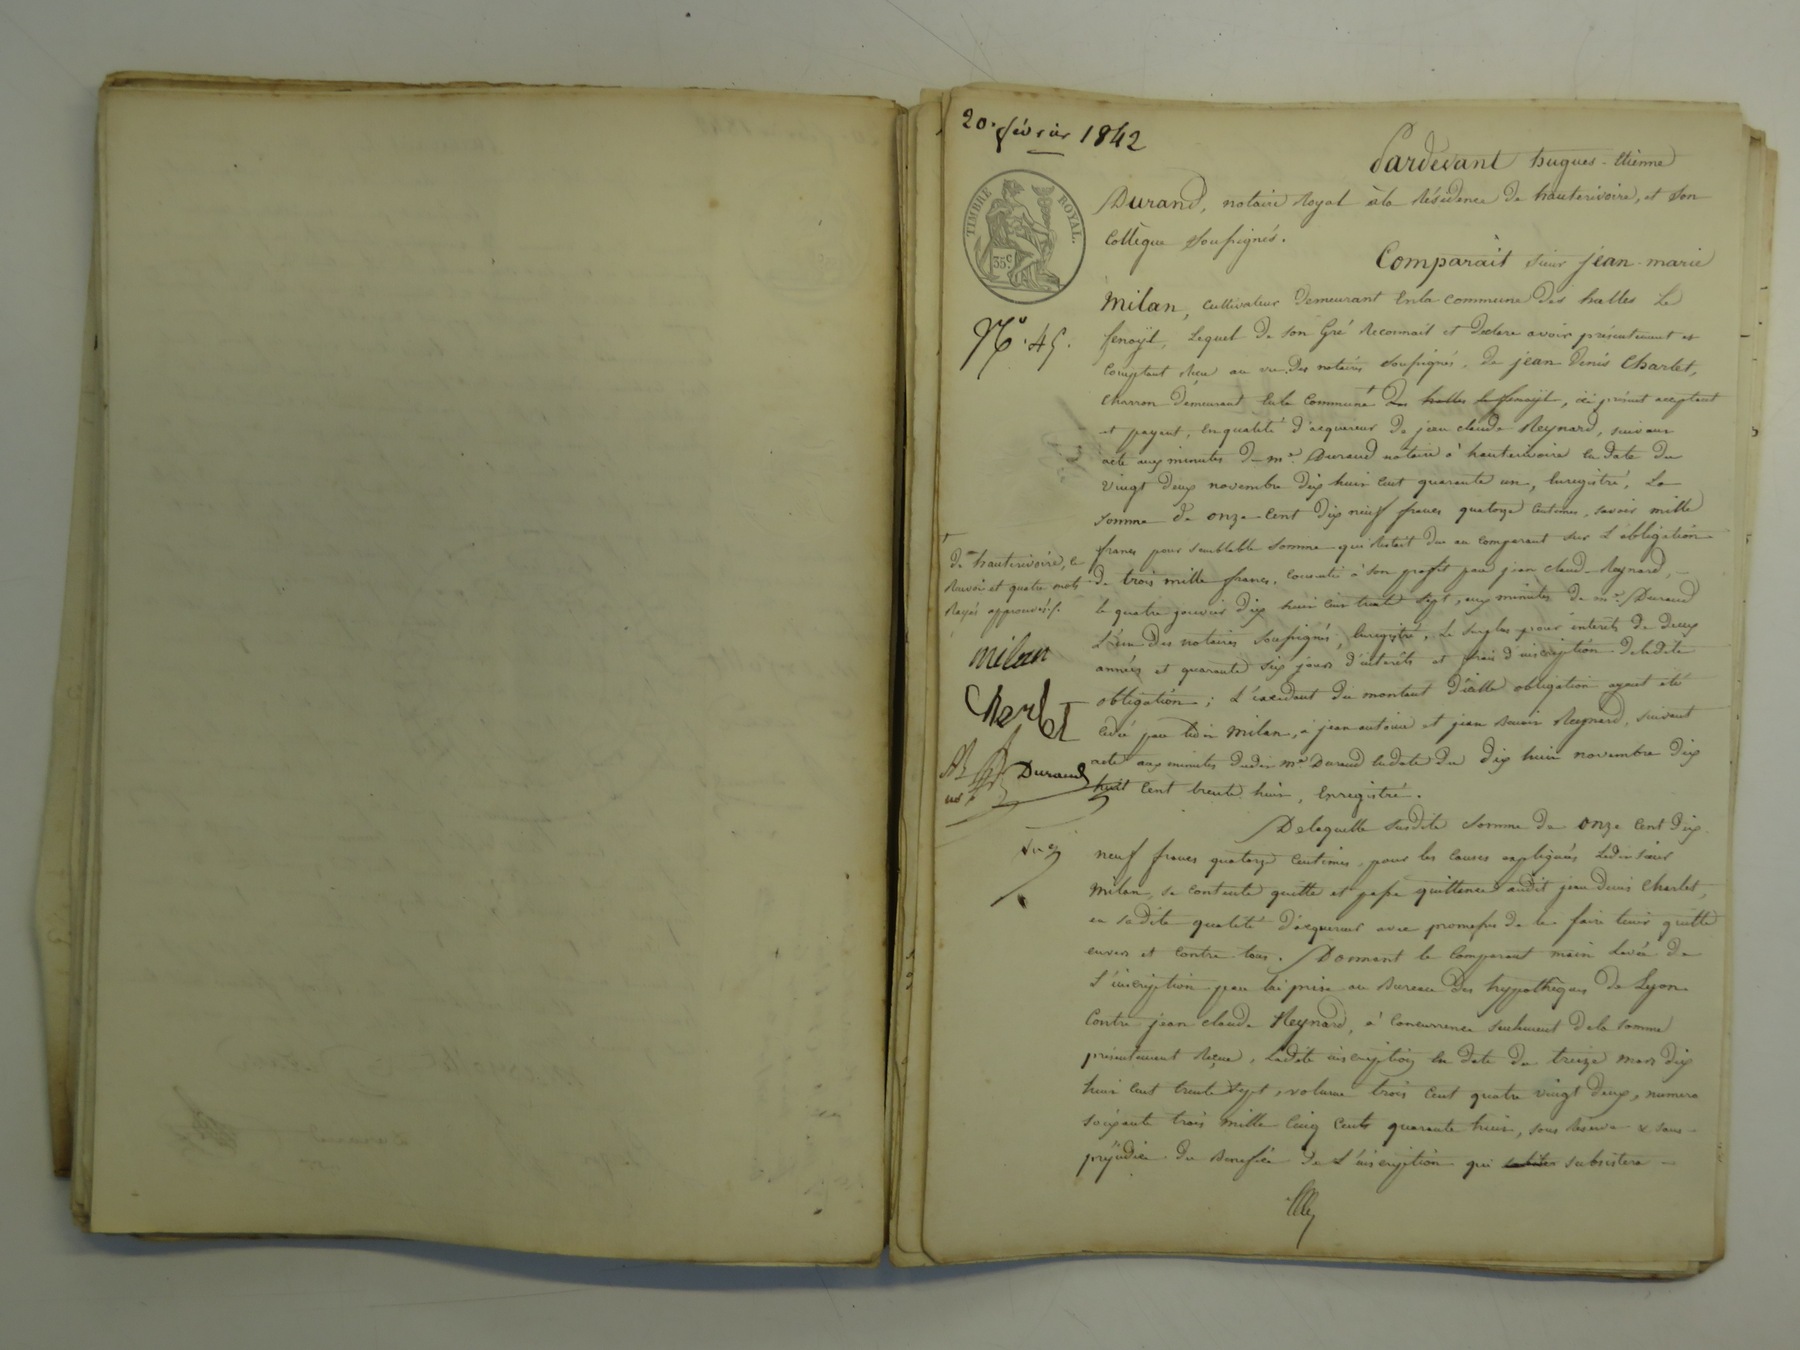 20. février 1842
Pardevant hugues-etienne
TIMBRE ROYAL.
35 c.
Durand, notaire Royal à la Résidence de hauterivoire, et son
Collègue soussignés.
Comparait sieur jean-marie
N.° 45.
Milan, cultivateur demeurant en la commune des halles Le
fenoÿl, Lequel de son Gré Reconnait et déclare avoir présentement et
Comptant Reçu au vu des notaires soussignés, de jean denis Charlet,
Charron demeurant en la Commune + des halles le fenoÿl, ici présent acceptant
et payant, en qualité d'acquereur de jean claude Reynard, suivant
acte aux minutes de me. Durand notaire à hauterivoire en date du
vingt deux novembre dix huit cent quarante un, enregistré, La
somme de onze-Cent dix neuf francs quatorze Centimes, savoir mille
francs pour semblable somme qui Restait due au comparant sur L'obligation
de trois mille francs, consentie à son profit par jean claude Reynard,
le quatre janvier dix huit cent trente sept, aux minutes de me. Durand
L'un des notaires soussignés, enregistré, Le surplus pour interets de deux
années et quarante six jours d'intérêts et frais d'inscription de ladite
obligation; L'excédant du montant d'icelle obligation ayant été
cédé par ledit Milan, à jean antoine et jean Reynard, suivant
acte aux minutes dudit me Durand en date du dix huit novembre dix
huit cent trente huit, enregistré.
+
de hauterivoire, ce
Renvoi et quatre mots
Rayés approuvés./.
milan
Charlet
Durand
De laquelle susdite somme de onze Cent dix
neuf francs quatorze centimes, pour les causes expliquées Ledit sieur
Milan, se contente quitte et passe quittance audit jean denis Charlet,
en sadite qualité d'acquereur avec promesse de le faire tenir quitte
envers et contre tous. Donnant le comparant main Levée de
L'inscription par lui prise au Bureau des hypothèques de Lyon
Contre jean claude Reynard, à Concurrence seulement de la somme
présentement Reçue, Ladite inscription en date du treize mars dix
huit cent trente sept, volume trois cent quatre vingt deux, numero
soixante trois mille Cinq Cents quarante huit, sous Reserve & sans
préjudice du Benefice de L'inscription qui subsistera